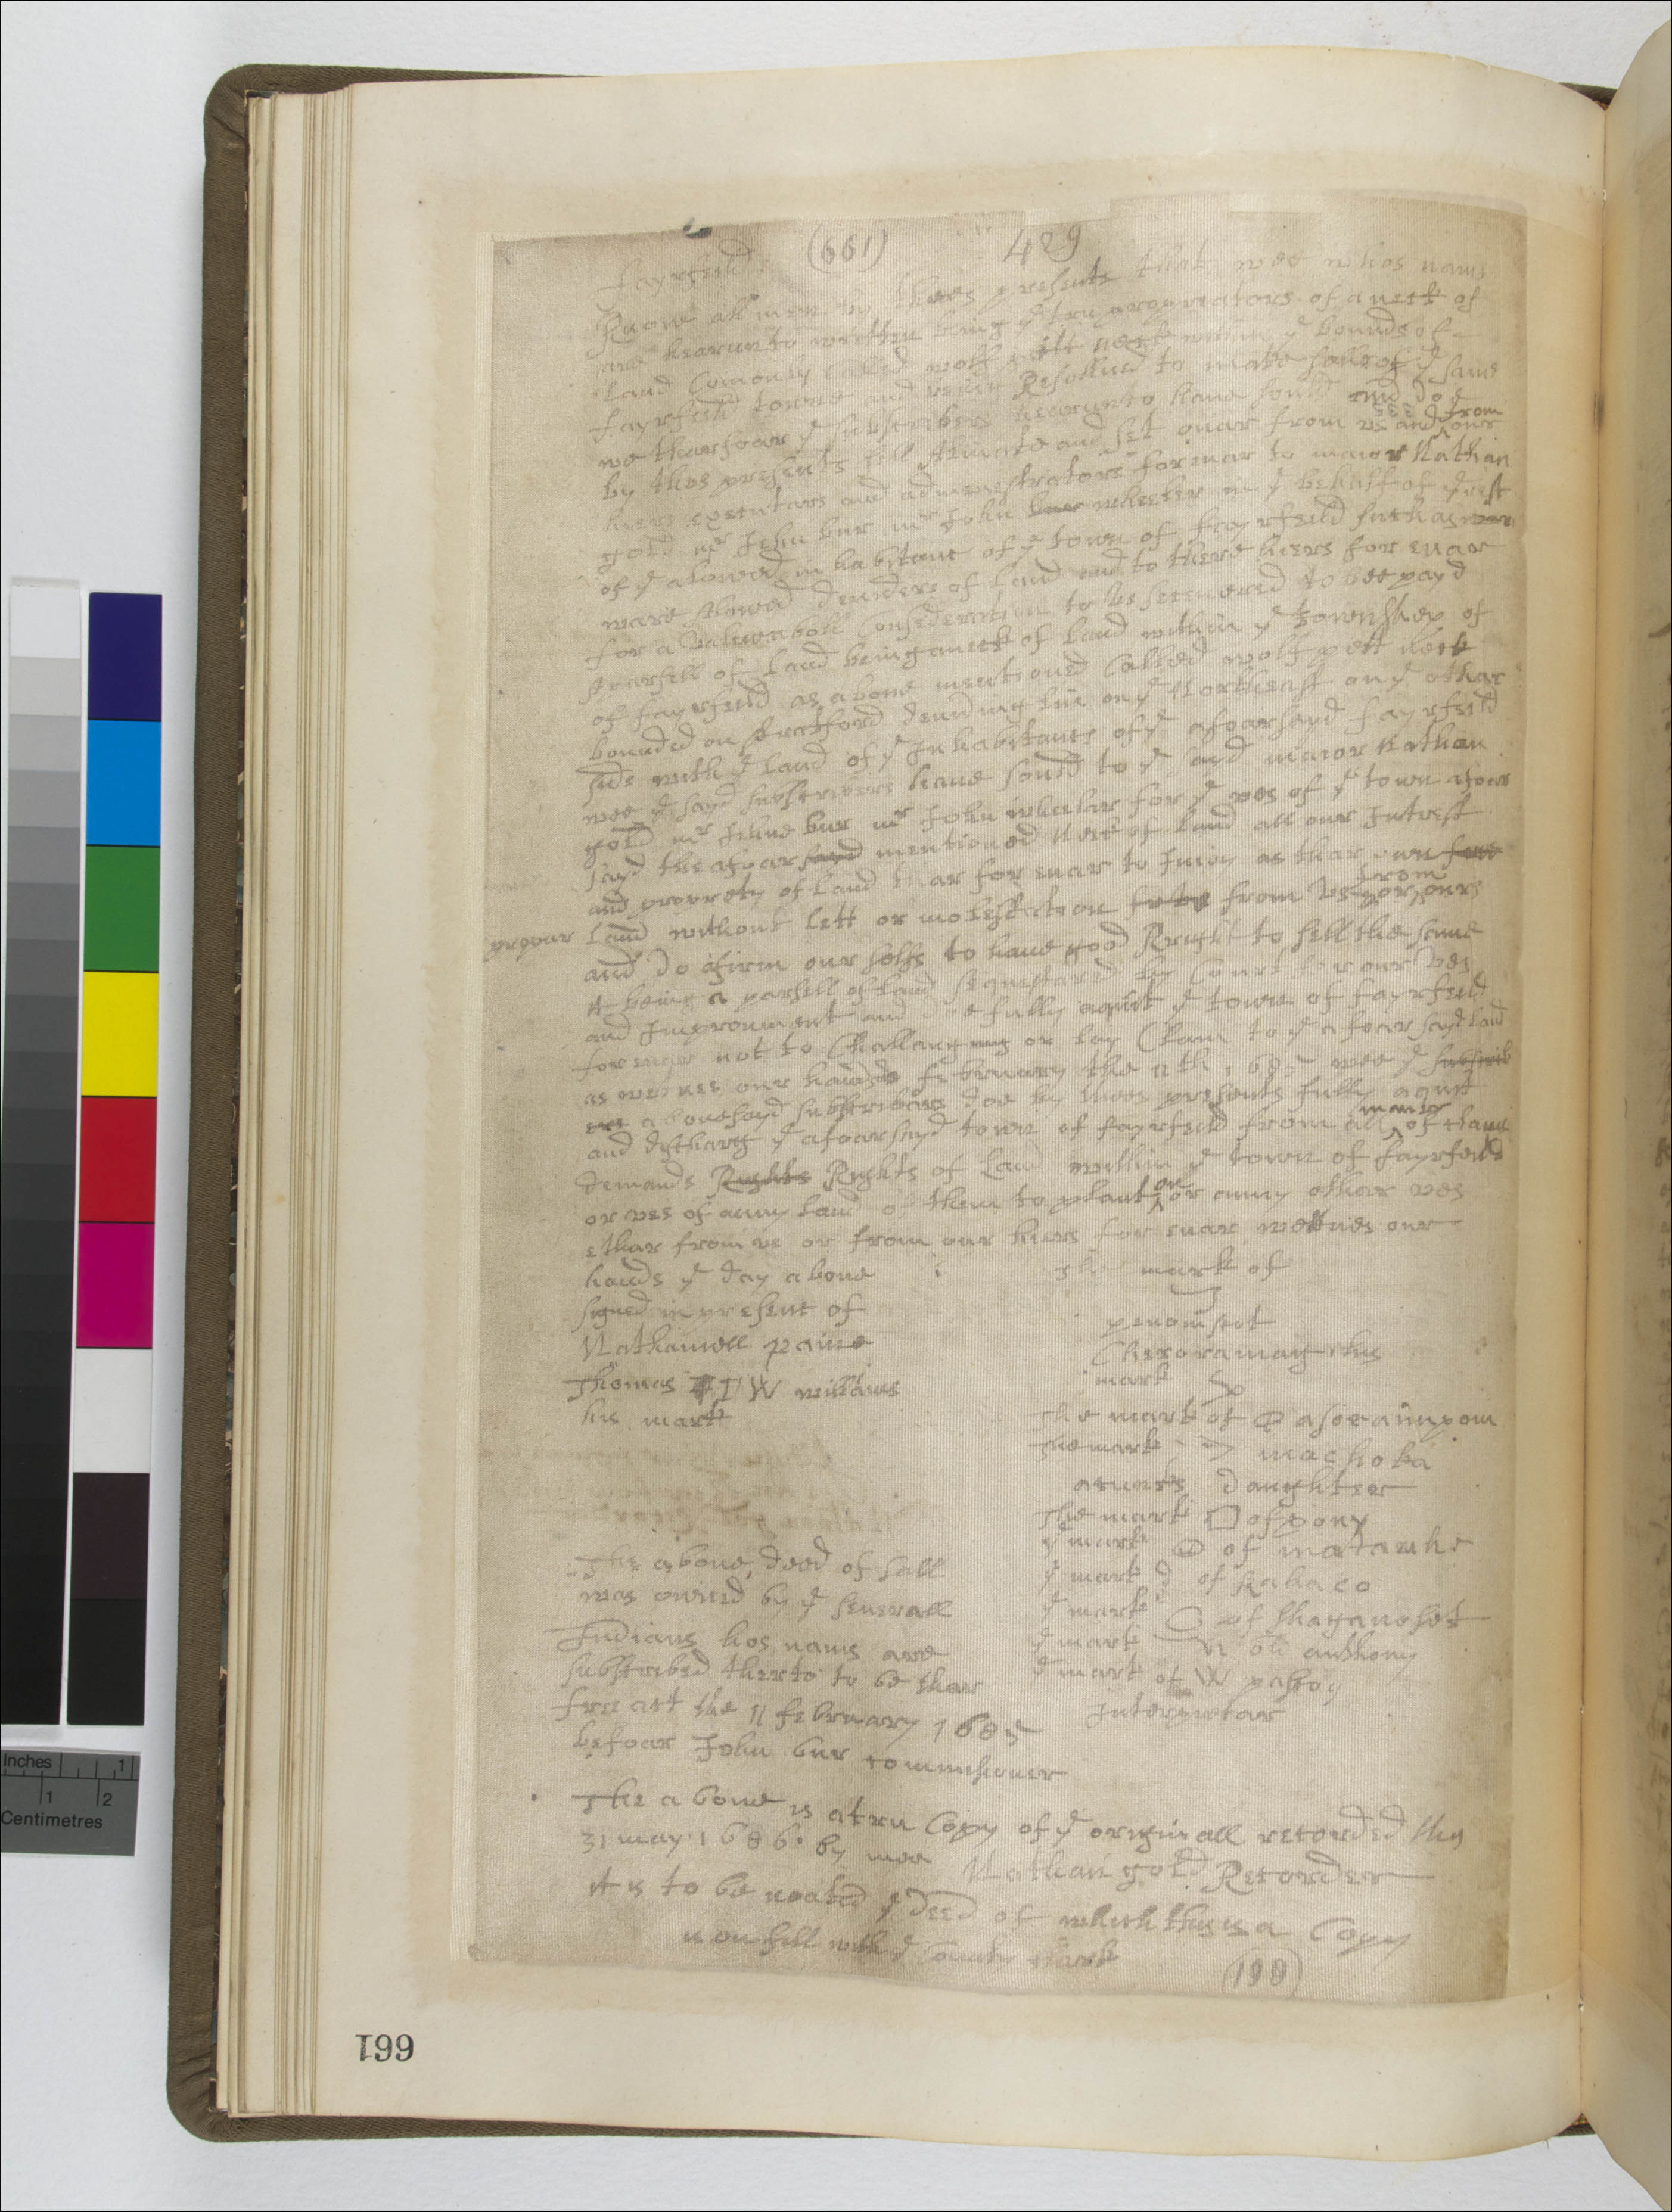 (661) 429
fayrfeild
Know all men by thees presents that wee whos nams
are hearunto written being yᵉ tru propriators of a neck of
land Comonly Called wolf pitt neck within yᵉ bounds of
fayrfeild towne and being Resollued to make salle of yᵉ same
we tharfoar yᵉ subscribers hearunto haue sould and doe
by thes presents sell Alinate and set ouar from us and from our
hiers executars and administrators for euar to maior Nathan
gold mr John bur mr John bur wheeler in yᵉ behalf of yᵉ rest
of yᵉ alowed inhabitanc of yᵉ town of fayrfeild such as war
ware Alowed deuiders of land and to there hiers for euar
for a Valewaboll Consederation to us secuered to bee payd
A parsell of land being a neck of land within yᵉ townshep of
of fayrfeild as aboue mentioned Called wolf pett neck
bounded on stratford deuiding lin on yᵉ Northeast on yᵉ othar
side with yᵉ land of yᵉ Inhabitants of yᵉ afoarsayd fayrfeild
wee yᵉ sayd subscribers haue sould to yᵉ sayd maior Nathan
gold mr John bur mr John whelar for yᵉ ues of yᵉ town afoar
sayd the afoar sayd mentioned Neck of land all our Intrest
and proprety of land thar for euar to Inioy as thar own free
propar land without lett or molestation from us or from ours
and do afirm our selfs to haue good Rright to sell the same
it being a parsell of land sequestared by Court for our Ues
and Improument and doe fully aquit yᵉ town of fayrfeild
for euar not to Challanging or lay Clam to yᵉ afoar sayd land
as witnes our hands february the 11th 1685 wee yᵉ subscrib
ers abouesayd subscribars doe by thees presents fully aquit
and discharg yᵉ afoarsayd town of fayrfeild from all manor of clams
demands Rights Rights of land within yᵉ town of fayrfeild
or ues of anny land of them to plant on or anny othar ues
ethar from us or from our hiers for euar wettnes our
hands yᵉ day aboue
signed in present of
Nathaniell paine
Thomas T I W williams
his mark
The mark of
penomscot
Cheroramag his
mark
The mark of asoraimpom
The mark machoka
atucks daughter
The mark of pony
yᵉ mark of matamhe
yᵉ mark of Kahaco
yᵉ mark of shaganoset
yᵉ mark of old anthony
yᵉ mark of W pascoy
Interpretar
The aboue deed of sall
was owned by yᵉ seuerall
Indians hos nams are
subscribed therto to be thar
free act the 11 february 1685
befoar John bur commishoner
The aboue is a tru Copy of yᵉ originall recorded this
31 may 1686 by mee Nathan gold Recorder
it is to be noated yᵉ deed of which this is a Copy
is on fill with yᵉ County Clark
(199)
661
Inches 1
1 2
Centimetres